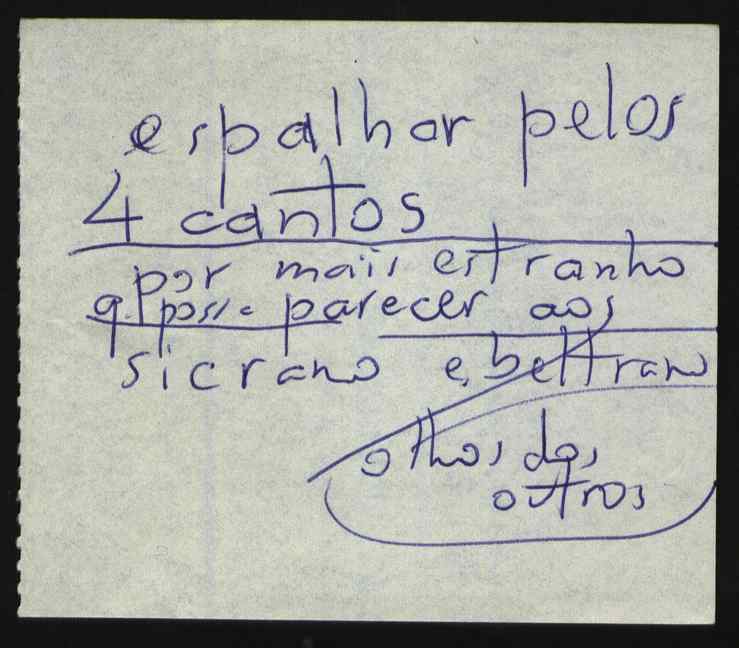 espalhar pelos
4 cantos
por mais estranho
q. possa parecer aos
sicrano e beltrano
olhos dos
outros